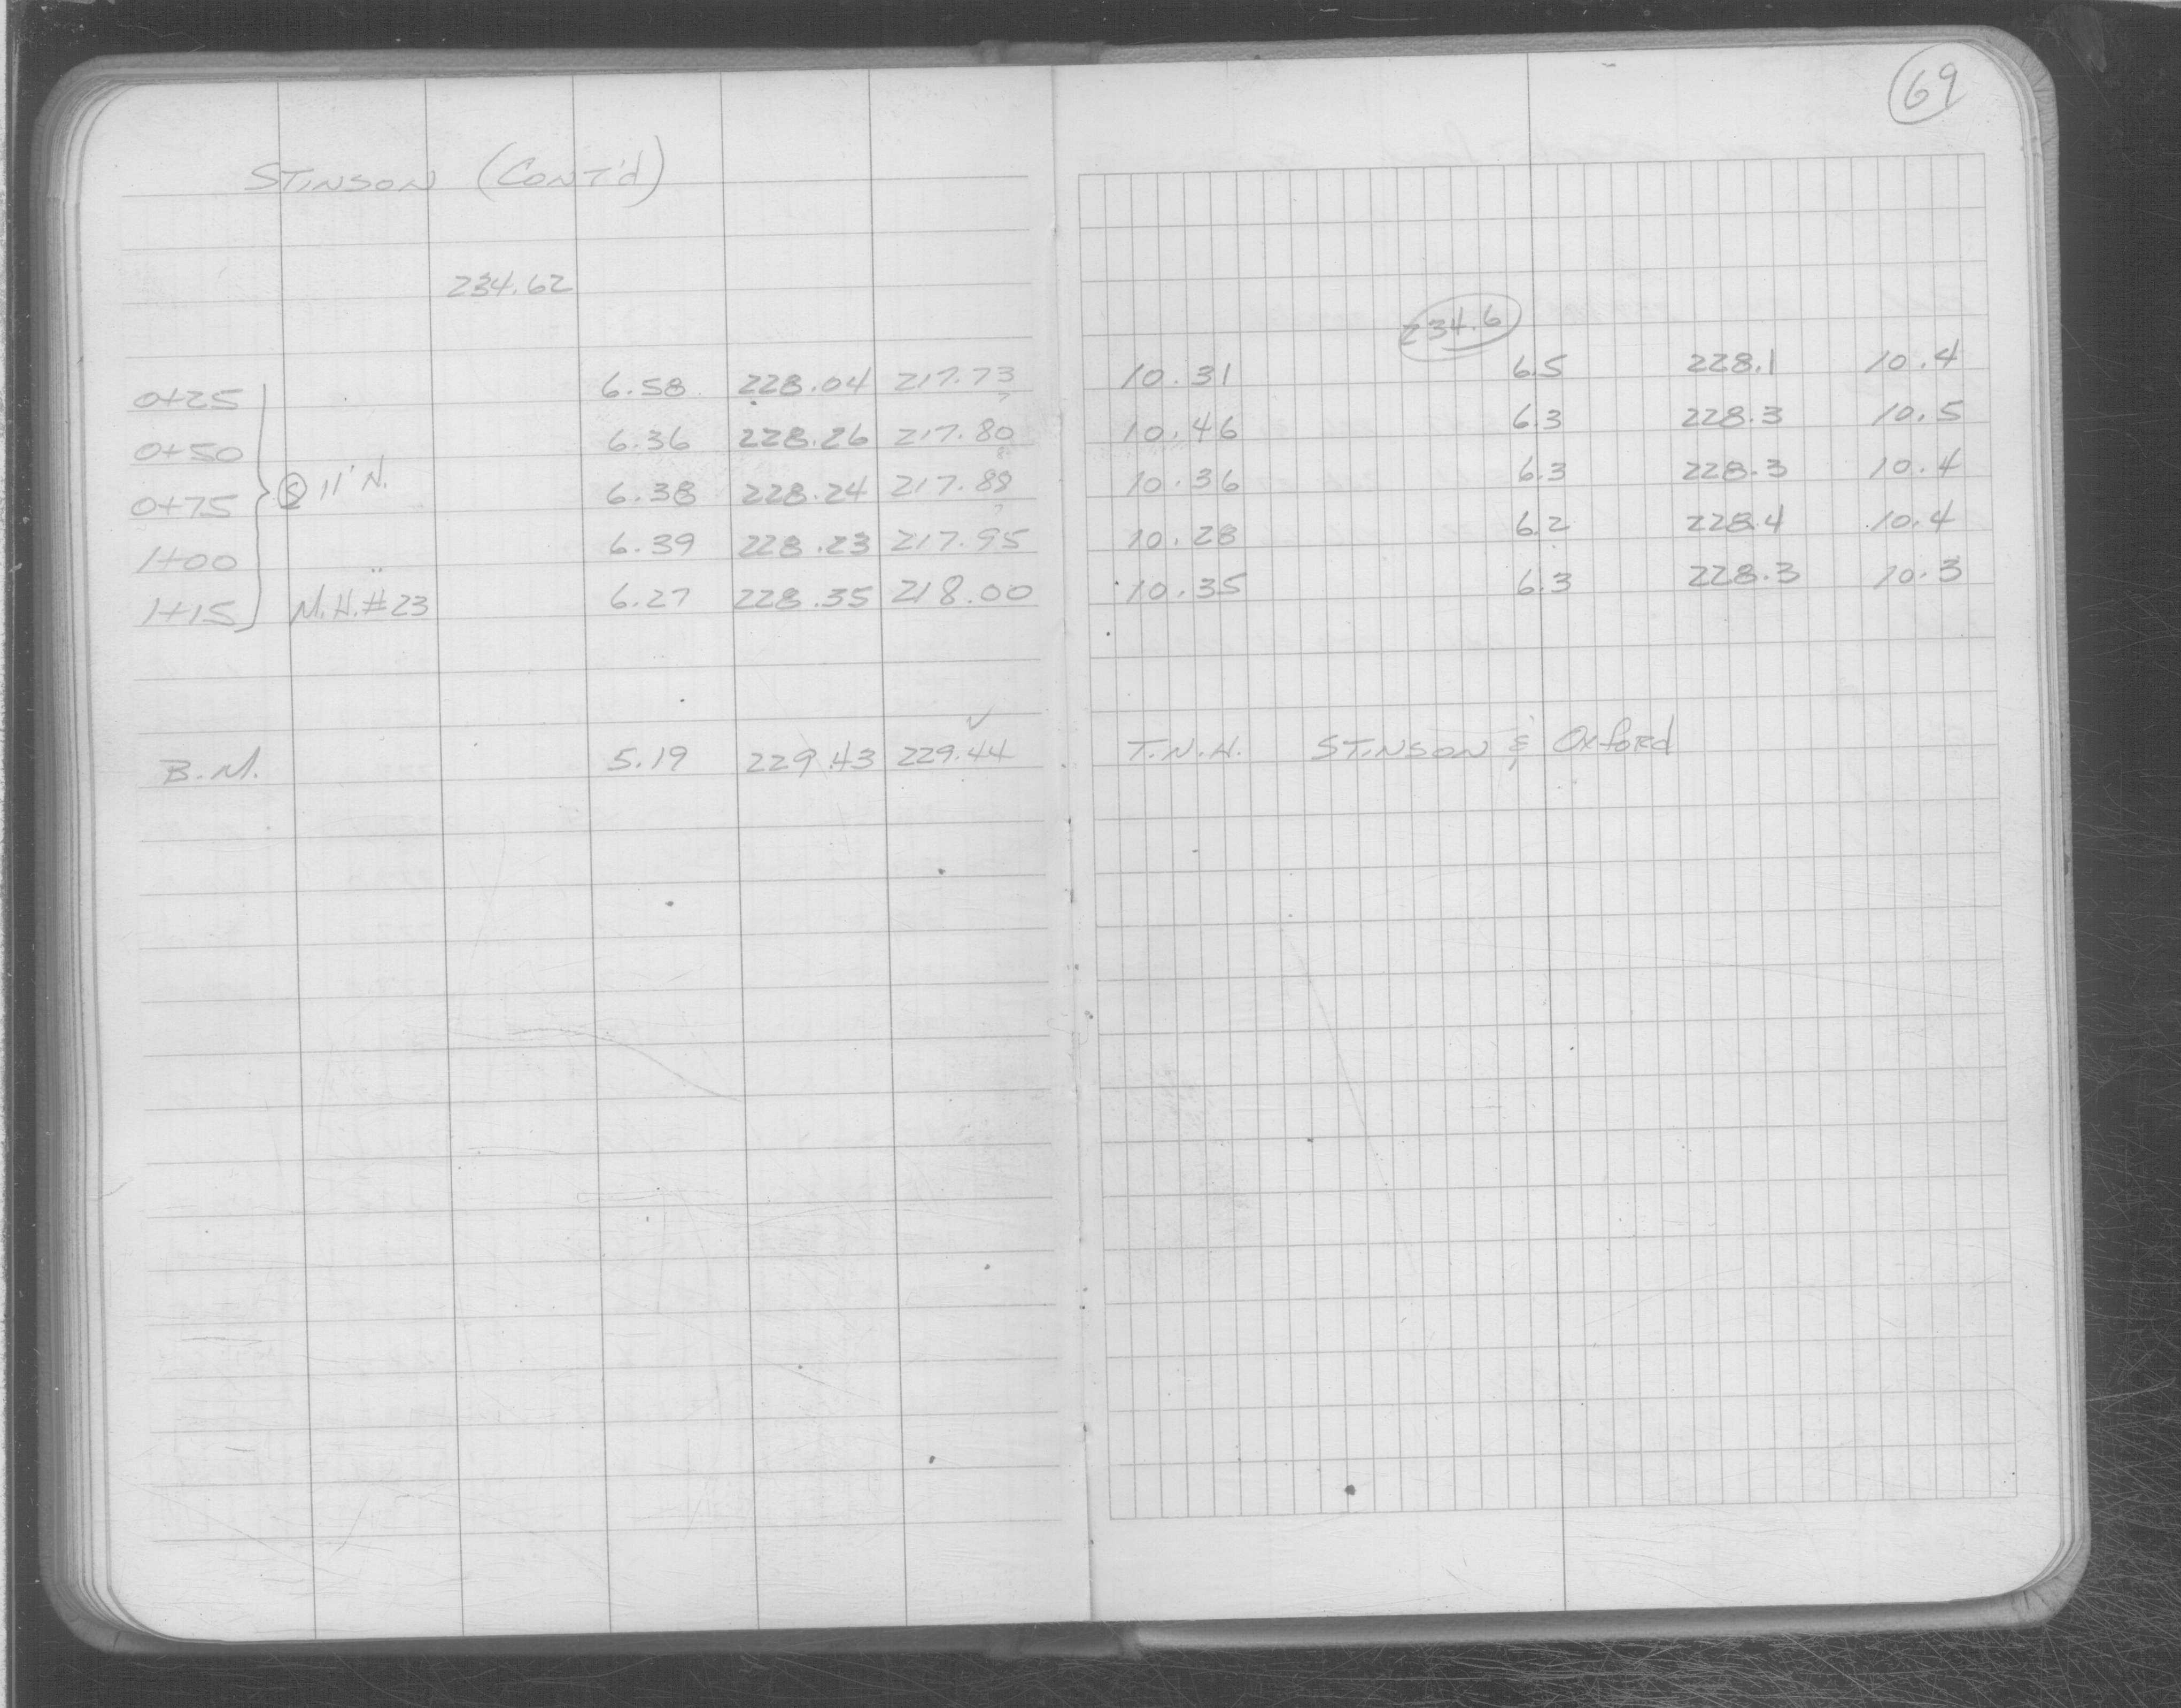 69
STINSON (CONT'd)
234.62
234.6
0+25 6.58 228.04 217.73 10.31 6.5 228.1 10.4
0+50 6.36 228.26 217.80 10.46 6.3 228.3 10.5
0+75 @ 11' N. 6.38 228.24 217.88 10.36 6.3 228.3 10.4
1+00 6.39 228.23 217.95 10.28 6.2 228.4 10.4
1+15 M.H.#23 6.27 228.35 218.00 10.35 6.3 228.3 10.3
B.M. 5.19 229.43 229.44 ✓ T.N.H. STINSON & OXfORd